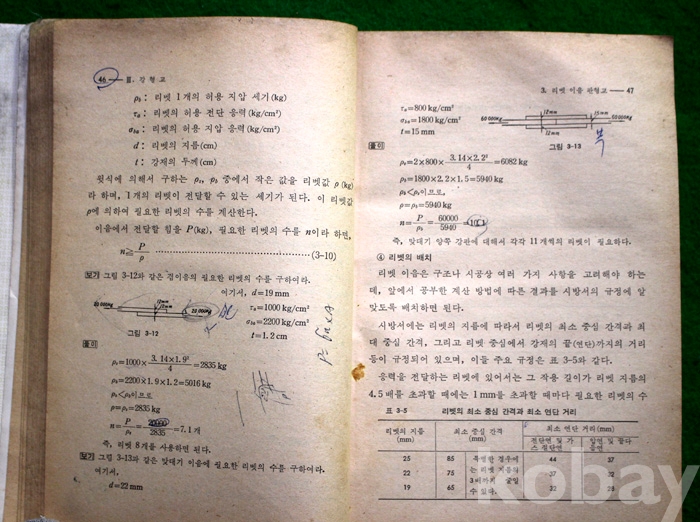 46 — Ⅲ. 강 형 교
ρb : 리벳 1개의 허용 지압 세기(kg)
τa : 리벳의 허용 전단 응력(kg/cm²)
σba : 리벳의 허용 지압 응력(kg/cm²)
d : 리벳의 지름(cm)
t : 강재의 두께(cm)
윗식에 의해서 구하는 ρs, ρb 중에서 작은 값을 리벳값 ρ (kg)
라 하며, 1개의 리벳이 전달할 수 있는 세기가 된다. 이 리벳값
ρ에 의하여 필요한 리벳의 수를 계산한다.
이음에서 전달할 힘을 P(kg), 필요한 리벳의 수를 n이라 하면,
n≧ P/ρ ……………………(3-10)
보기 그림 3-12와 같은 겹이음의 필요한 리벳의 수를 구하여라.
여기서, d=19 mm
τa=1000 kg/cm²
σba=2200 kg/cm²
t=1.2 cm
20 000kg
그림 3-12
풀이
ρs=1000× 3.14×1.9²/4 =2835 kg
ρb=2200×1.9×1.2=5016 kg
ρs<ρb이므로
ρ=ρs=2835 kg
n= P/ρ = 20000/2835 =7.1개
즉, 리벳 8개를 사용하면 된다.
보기 그림 3-13과 같은 맞대기 이음에 필요한 리벳의 수를 구하여라.
여기서,
d=22 mm
3. 리벳 이음 판형교 — 47
τa=800 kg/cm²
σba=1800 kg/cm²
t=15 mm
60 000kg
12mm
15mm
60 000kg
12mm
그림 3-13
풀이
ρs=2×800× 3.14×2.2²/4 =6082 kg
ρb=1800×2.2×1.5=5940 kg
ρb<ρs이므로,
ρ=ρb=5940 kg
n= P/ρ = 60000/5940 =10.1
즉, 맞대기 양쪽 강판에 대해서 각각 11개씩의 리벳이 필요하다.
④ 리벳의 배치
리벳 이음은 구조나 시공상 여러 가지 사항을 고려해야 하는
데, 앞에서 공부한 계산 방법에 따른 결과를 시방서의 규정에 알
맞도록 배치하면 된다.
시방서에는 리벳의 지름에 따라서 리벳의 최소 중심 간격과 최
대 중심 간격, 그리고 리벳 중심에서 강재의 끝(연단)까지의 거리
등이 규정되어 있으며, 이들 주요 규정은 표 3-5와 같다.
응력을 전달하는 리벳에 있어서는 그 작용 길이가 리벳 지름의
4.5배를 초과할 때에는 1mm을 초과할 때마다 필요한 리벳의 수
표 3-5 리벳의 최소 중심 간격과 최소 연단 거리
리벳의 지름 (mm) 최소 중심 간격 (mm) 최소 연단 거리(mm)
전단연 및 가스 절단연
25 85 특별한 경우에 44 37
22 75 는 리벳 지름의 37 32
19 65 3배까지 줄일 수 있다. 32 28
kobay